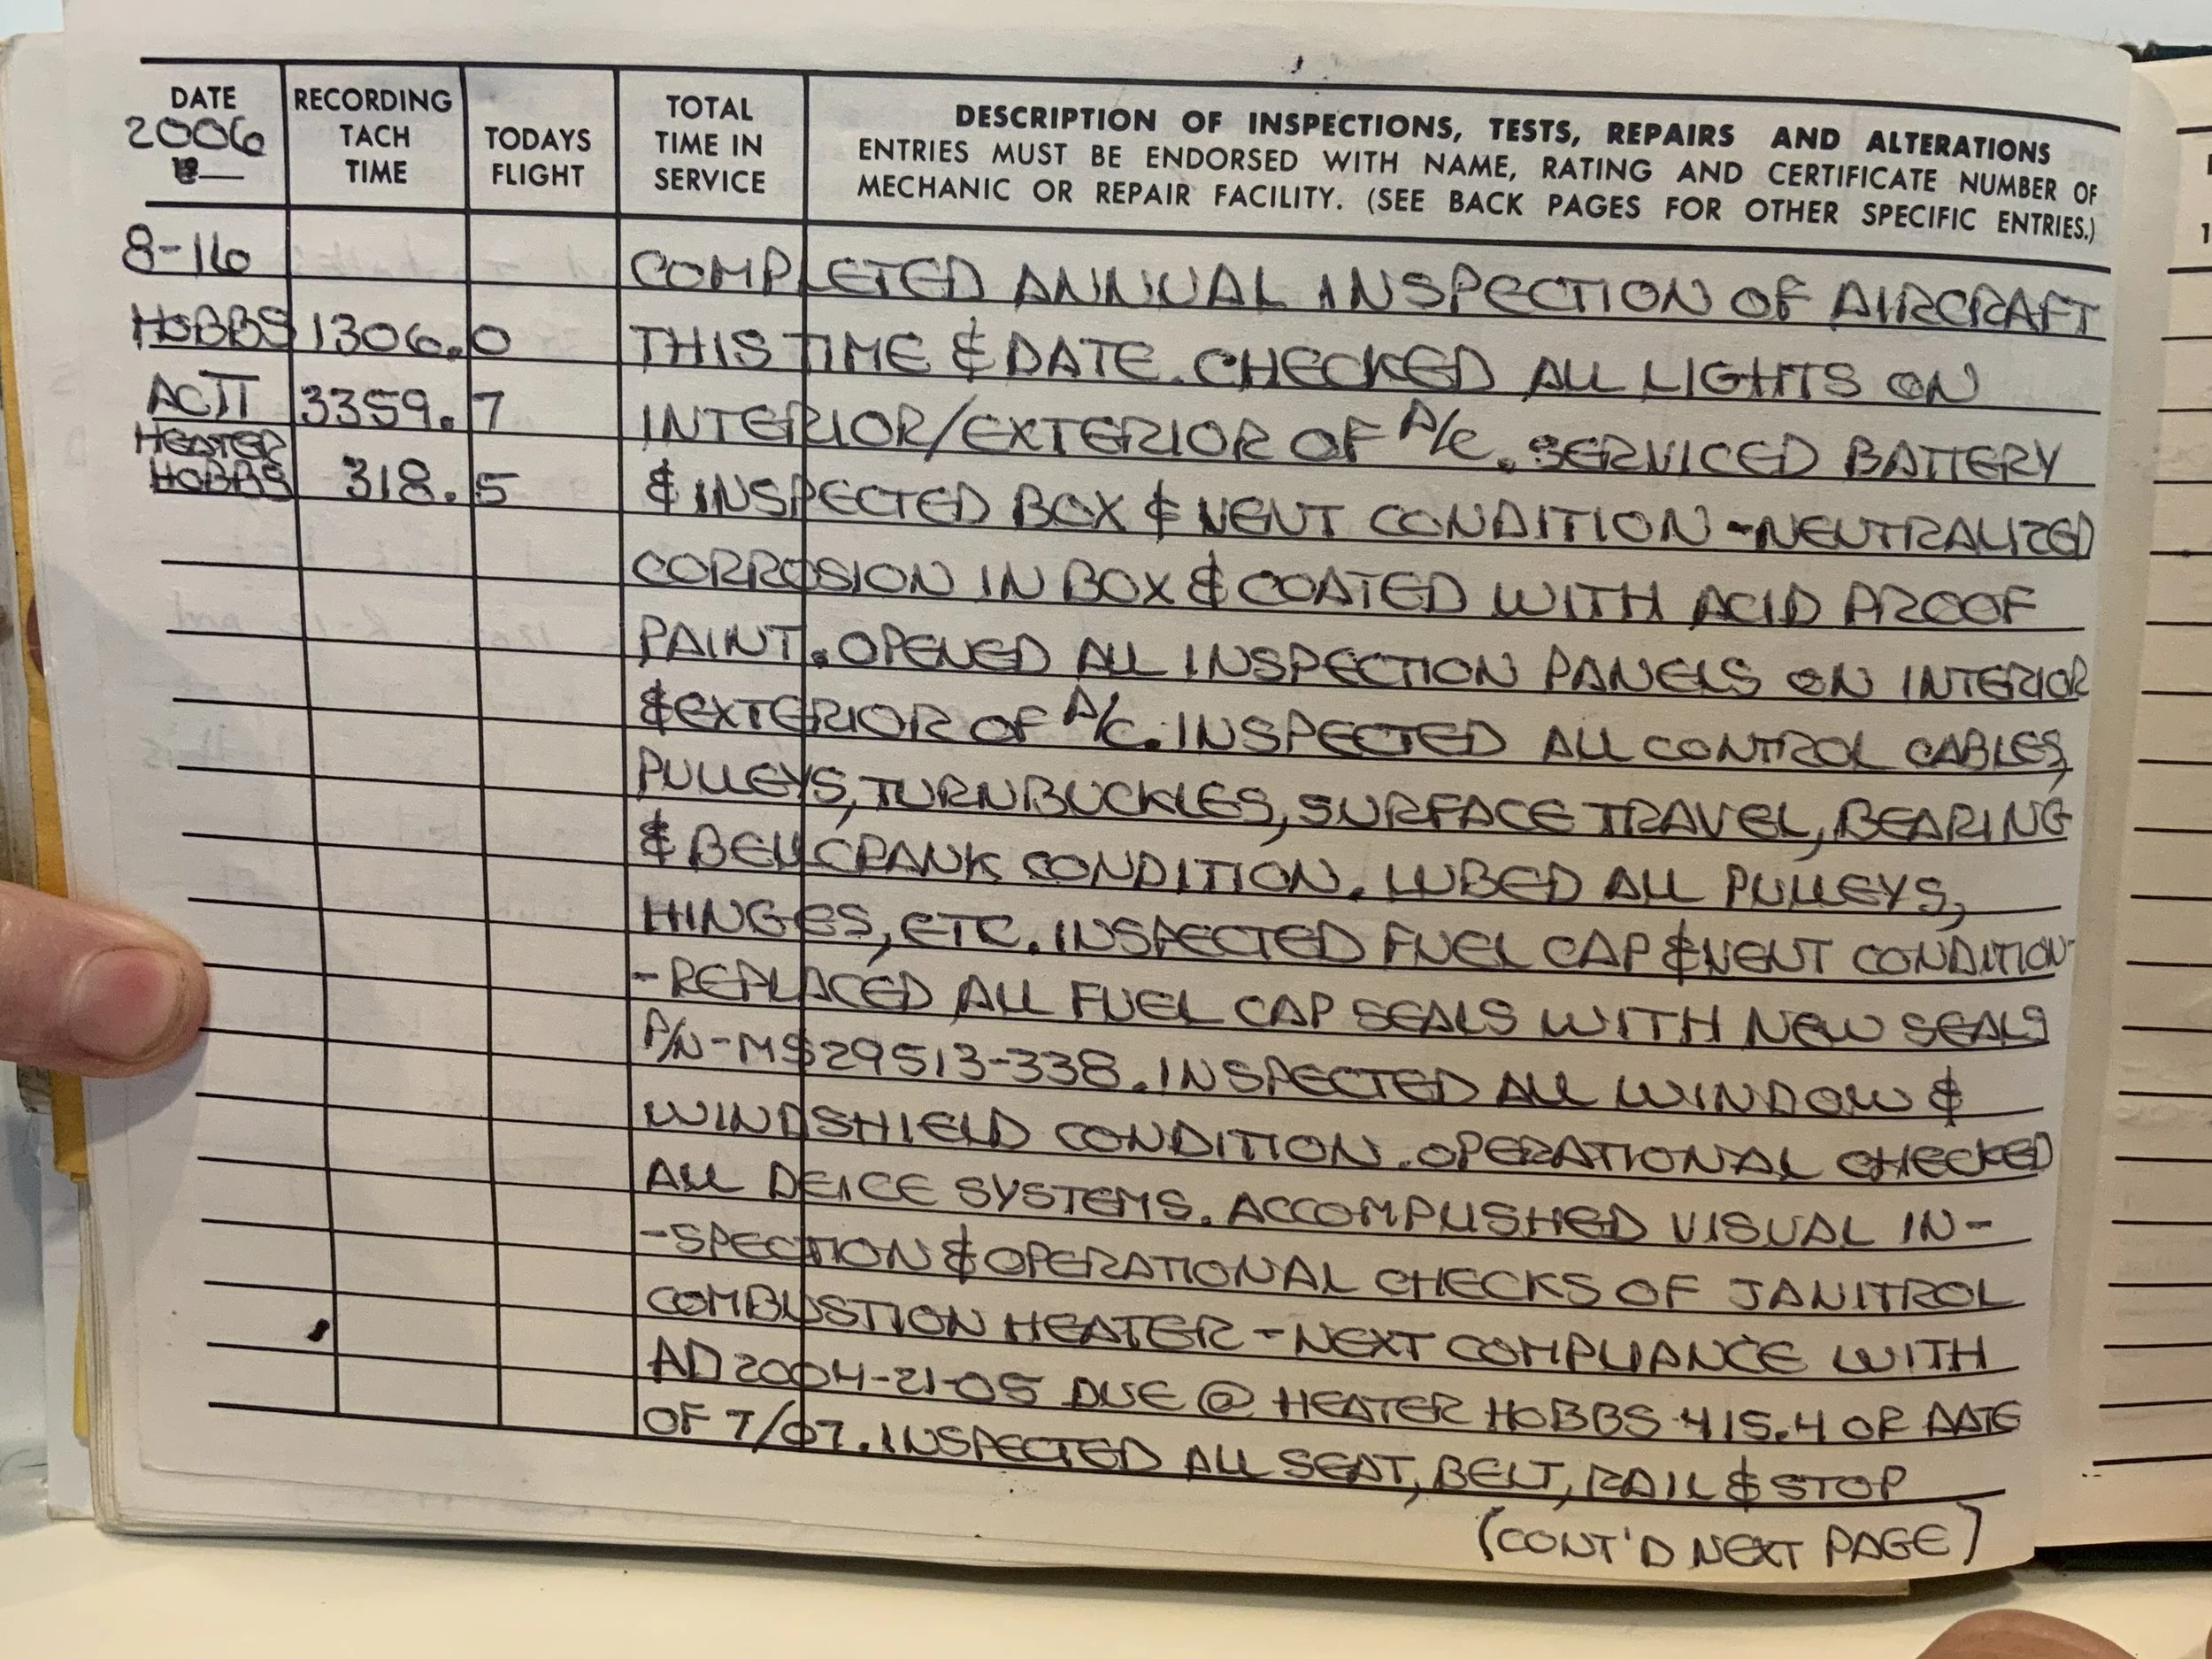 DATE
2006
RECORDING
TACH
TIME
TODAYS
FLIGHT
TOTAL
TIME IN
SERVICE
DESCRIPTION OF INSPECTIONS, TESTS, REPAIRS AND ALTERATIONS
ENTRIES MUST BE ENDORSED WITH NAME, RATING AND CERTIFICATE NUMBER OF
MECHANIC OR REPAIR FACILITY. (SEE BACK PAGES FOR OTHER SPECIFIC ENTRIES.)
8-16 COMPLETED ANNUAL INSPECTION OF AIRCRAFT
HOBBS 1306.0 THIS TIME & DATE. CHECKED ALL LIGHTS ON
ACTT 3359.7 INTERIOR/EXTERIOR OF A/C. SERVICED BATTERY
HEATER
HOBBS 318.5 & INSPECTED BOX & VENT CONDITION -NEUTRALIZED
CORROSION IN BOX & COATED WITH ACID PROOF
PAINT. OPENED ALL INSPECTION PANELS ON INTERIOR
& EXTERIOR OF A/C. INSPECTED ALL CONTROL CABLES,
PULLEYS, TURNBUCKLES, SURFACE TRAVEL, BEARING
& BELLCRANK CONDITION. LUBED ALL PULLEYS,
HINGES, ETC. INSPECTED FUEL CAP & VENT CONDITION
-REPLACED ALL FUEL CAP SEALS WITH NEW SEALS
P/N-MS29513-338. INSPECTED ALL WINDOW &
WINDSHIELD CONDITION. OPERATIONAL CHECKED
ALL DEICE SYSTEMS. ACCOMPLISHED VISUAL IN-
-SPECTION & OPERATIONAL CHECKS OF JANITROL
COMBUSTION HEATER - NEXT COMPLIANCE WITH
AD 2004-21-05 DUE @ HEATER HOBBS 415.4 OR DATE
OF 7/07. INSPECTED ALL SEAT, BELT, RAIL & STOP
(CONT'D NEXT PAGE)